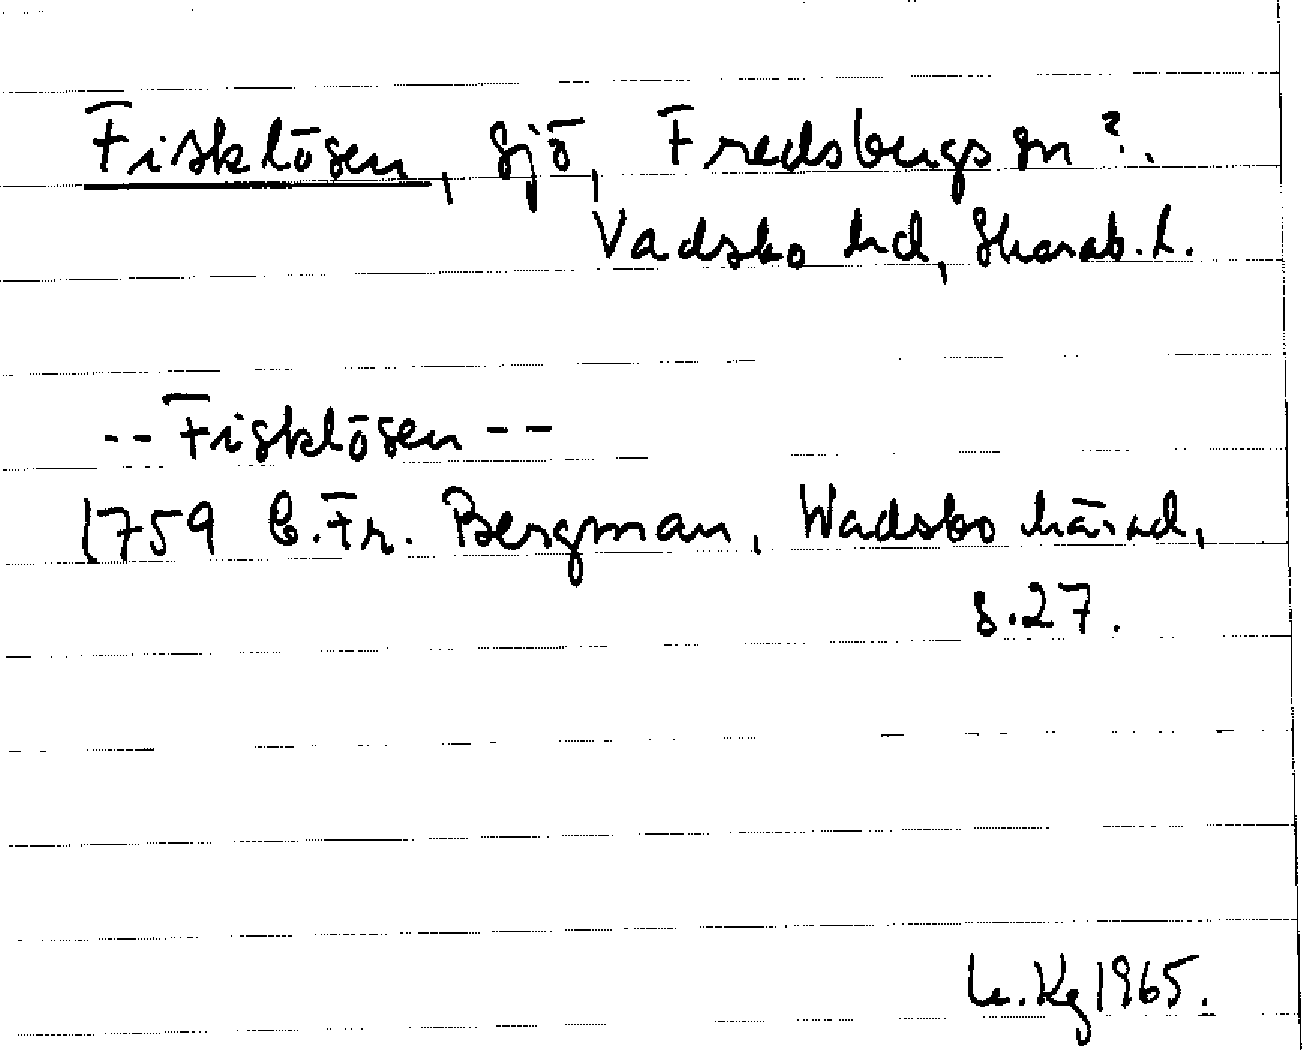 Fisklösen, sjö, Fredsbergs sn?.
Vadsbo hd, Skarab.L.
-- Fisklösen --
1759 C.Fr. Bergman, Wadsbo härad,
s.27.
Kg 1965.